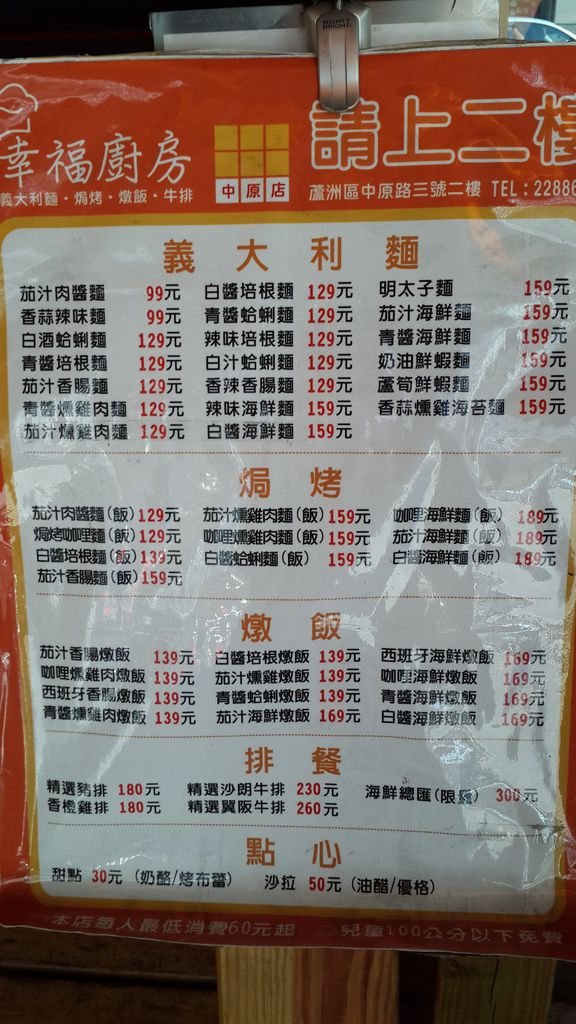 MIGHTY BRIGHT
幸福廚房
義大利麵・焗烤・燉飯・牛排
中原店
請上二樓
蘆洲區中原路三號二樓 TEL:22886
義大利麵
茄汁肉醬麵 99元 白醬培根麵 129元 明太子麵 159元
香蒜辣味麵 99元 青醬蛤蜊麵 129元 茄汁海鮮麵 159元
白酒蛤蜊麵 129元 辣味培根麵 129元 青醬海鮮麵 159元
青醬培根麵 129元 白汁蛤蜊麵 129元 奶油鮮蝦麵 159元
茄汁香腸麵 129元 香辣香腸麵 129元 蘆筍鮮蝦麵 159元
青醬燻雞肉麵 129元 辣味海鮮麵 159元 香蒜燻雞海苔麵 159元
茄汁燻雞肉麵 129元 白醬海鮮麵 159元
焗烤
茄汁肉醬麵(飯) 129元 茄汁燻雞肉麵(飯) 159元 咖哩海鮮麵(飯) 189元
焗烤咖哩麵(飯) 129元 咖哩燻雞肉麵(飯) 159元 茄汁海鮮麵(飯) 189元
白醬培根麵(飯) 139元 白醬蛤蜊麵(飯) 159元 白醬海鮮麵(飯) 189元
茄汁香腸麵(飯) 159元
燉飯
茄汁香腸燉飯 139元 白醬培根燉飯 139元 西班牙海鮮燉飯 169元
咖哩燻雞肉燉飯 139元 茄汁燻雞燉飯 139元 咖哩海鮮燉飯 169元
西班牙香腸燉飯 139元 青醬蛤蜊燉飯 139元 青醬海鮮燉飯 169元
青醬燻雞肉燉飯 139元 茄汁海鮮燉飯 169元 白醬海鮮燉飯 169元
排餐
精選豬排 180元 精選沙朗牛排 230元 海鮮總匯(限量) 300元
香橙雞排 180元 精選翼板牛排 260元
點心
甜點 30元 (奶酪/烤布蕾) 沙拉 50元 (油醋/優格)
本店每人最低消費60元起 兒童100公分以下免費